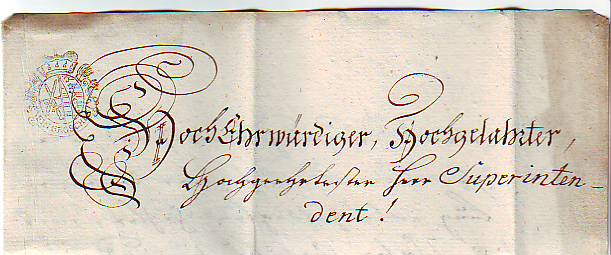 HochEhrwürdiger, Hochgelahrter,
Hochgeehrtester Herr Superinten-
dent!